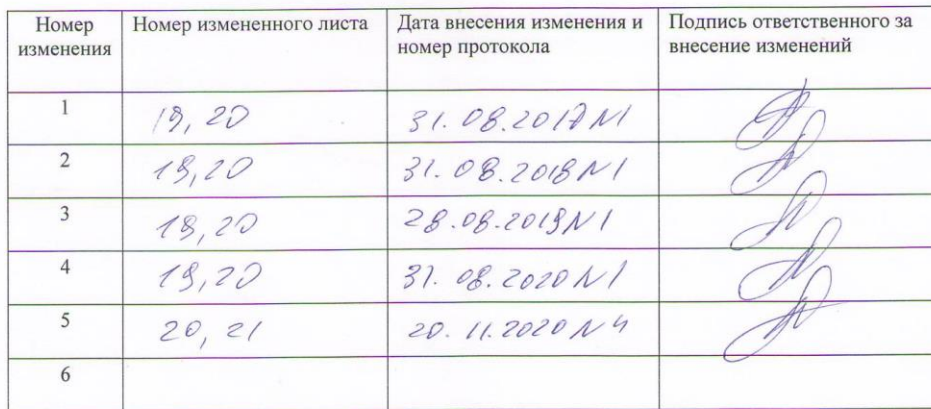 Номер изменения Номер измененного листа Дата внесения изменения и номер протокола Подпись ответственного за внесение изменений
1 19, 20 31.08.2017 N1
2 19,20 31.08.2018 N1
3 19,20 28.08.2019 N1
4 19,20 31.08.2020 N1
5 20, 21 20.11.2020 N4
6